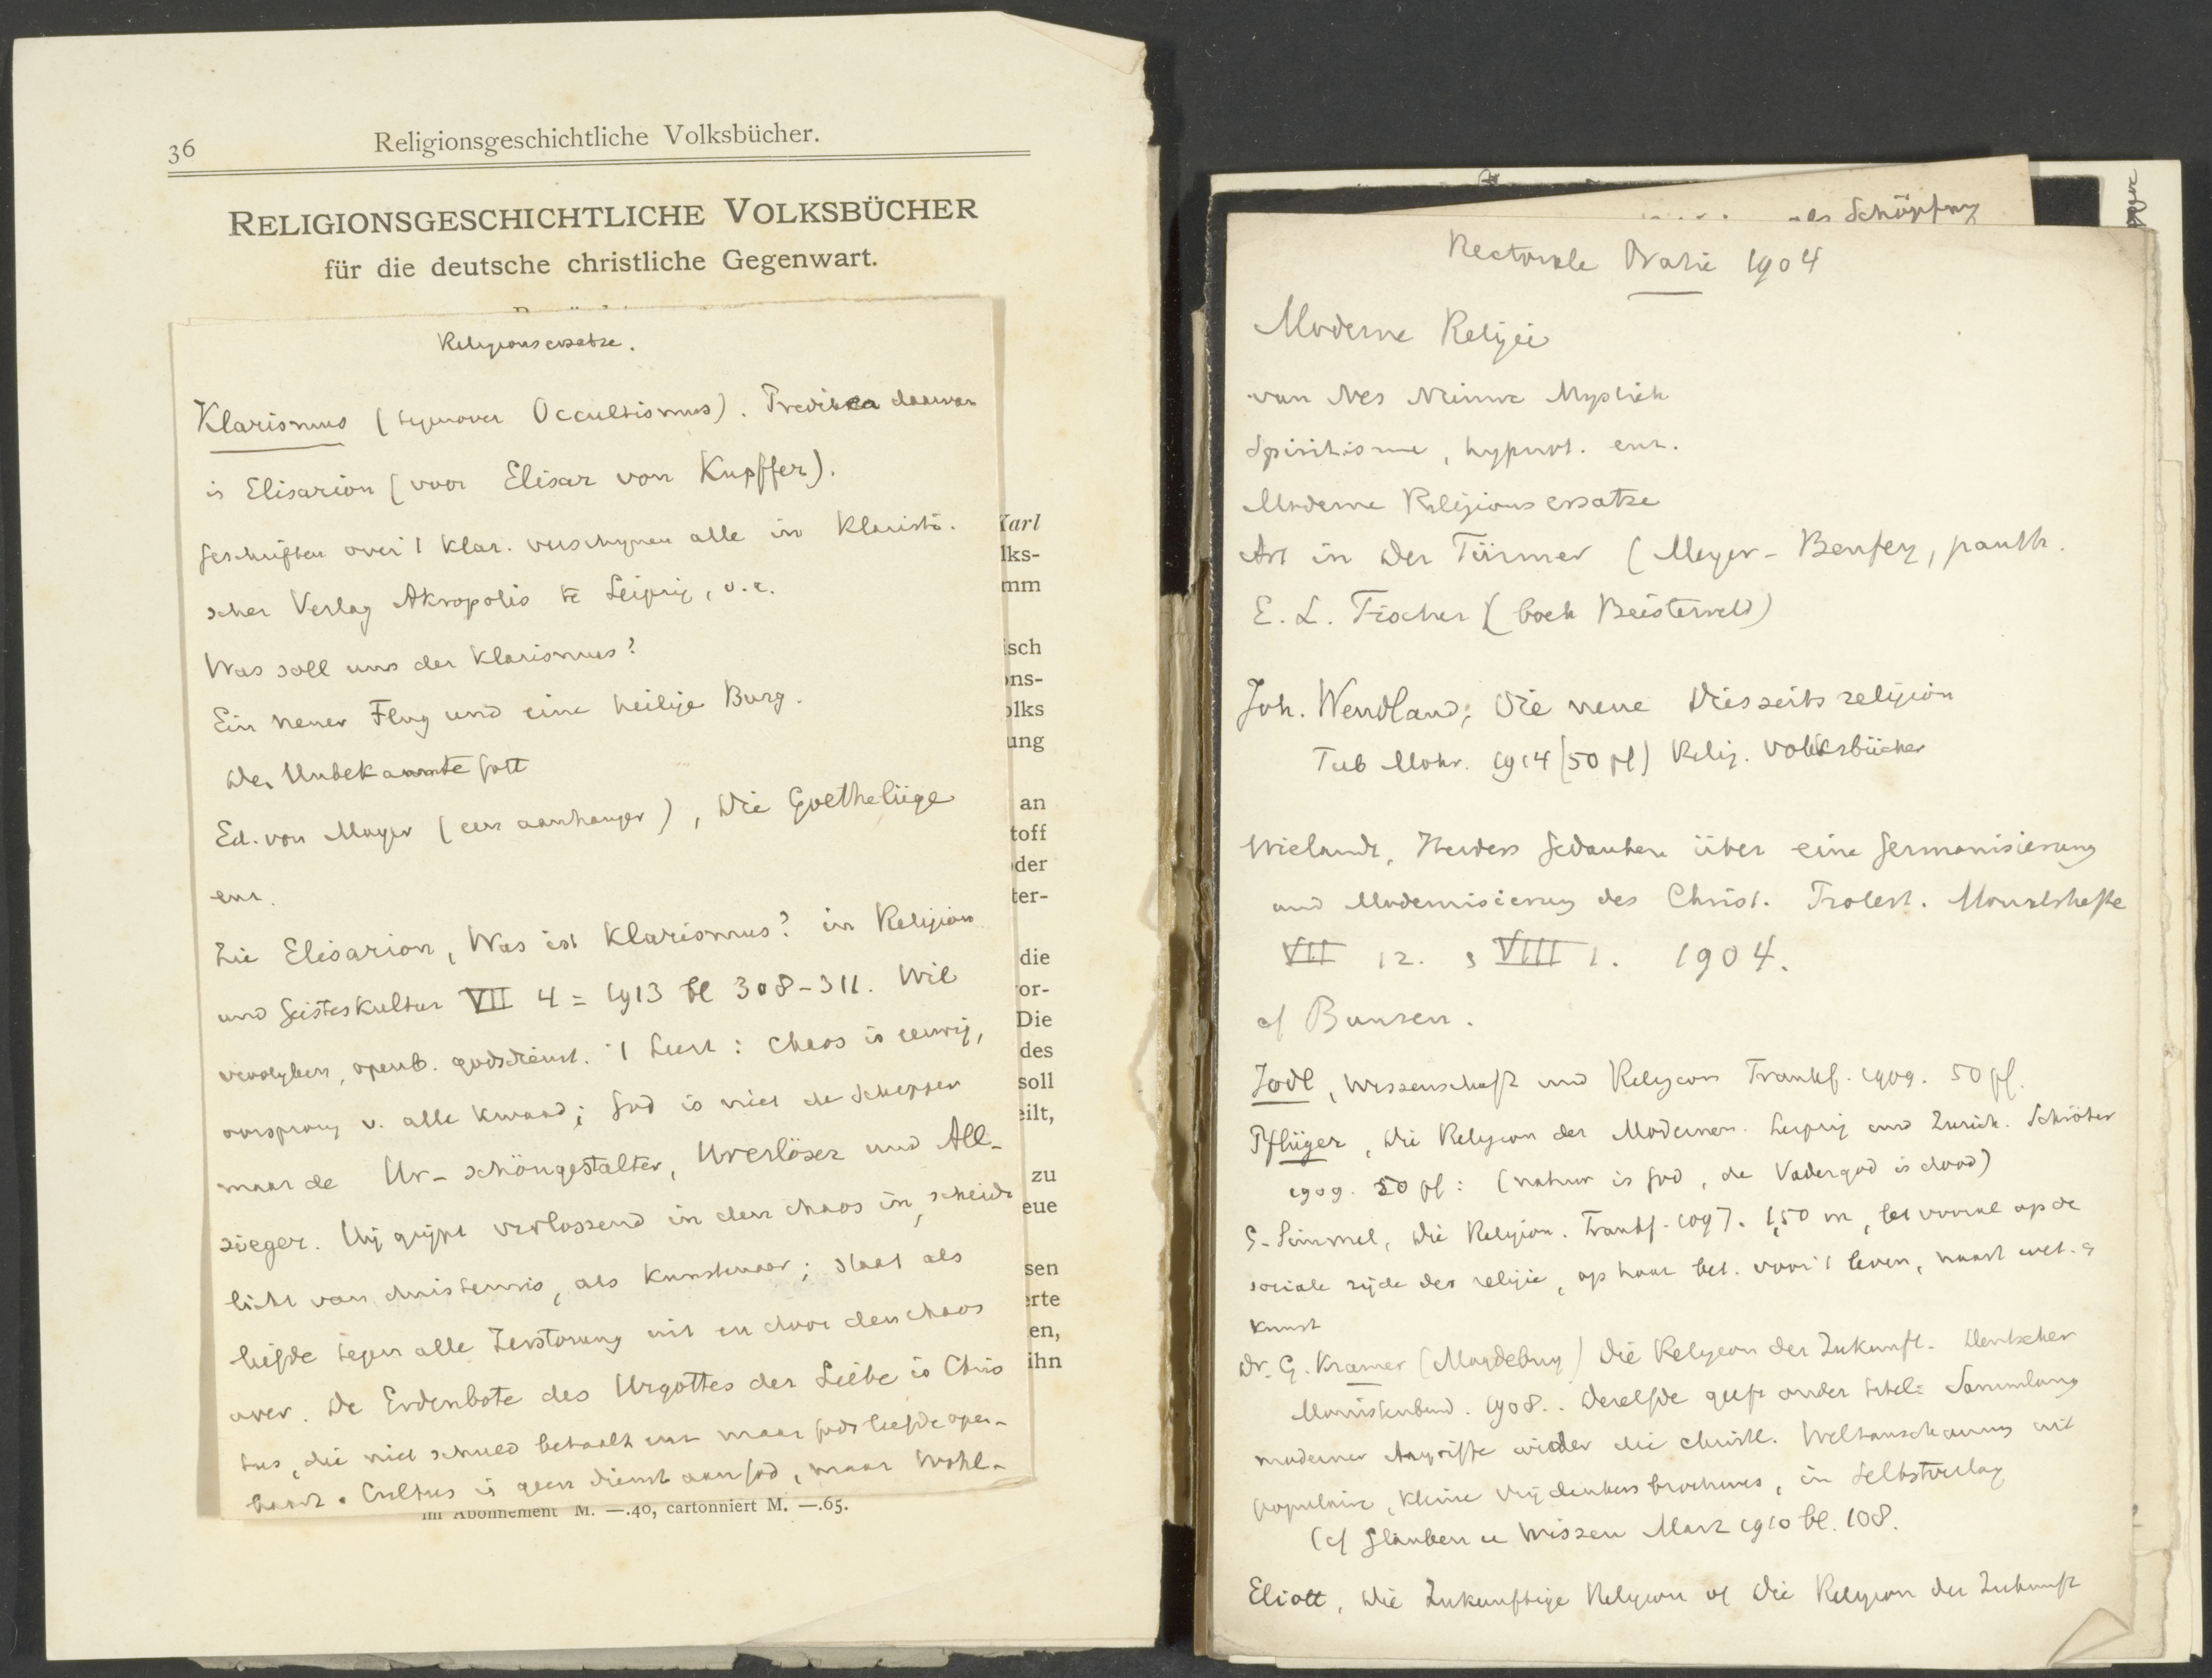 36
Religionsgeschichtliche Volksbücher.
RELIGIONSGESCHICHTLICHE VOLKSBÜCHER
für die deutsche christliche Gegenwart.
Religionsersatze.
Klarismus (tegenover Occultismus). Prediker daarvan
is Elisarion (voor Elisar von Kupffer).
Geschriften over 't Klar. verschynen alle in Klaristi-
scher Verlag Akropolis te Leipzig, o.a.
Was soll uns der Klarismus?
Ein neuer Flug und eine heilige Burg.
Der Unbekannte Gott
Ed. von Mayer (een aanhanger), Die Goethelüge
enz.
Zie Elisarion, Was ist Klarismus? in Religion
und Geisteskultur VII 4 = 1913 bl 308-311. Wil
openb. godsdienst. 't Leert: Chaos is eeuwig,
oorsprong v. alle kwaad; God is niet de Schepper
maar de Ur-schöngestalter, Urerlöser und All-
sieger. Hij grijpt verlossend in den chaos in, scheidt
licht van duisternis, als Kunstenaar; staat als
liefde tegen alle Zerstörung uit en door den chaos
over. De Erdenbote des Urgottes der Liebe is Chris
tus, die niet schuld betaalt enz maar Gods liefde open-
baart. Cultus is geen dienst aan God, maar Wohl-
im Abonnement M. —.40, cartonniert M. —.65.
Karl
lks-
mm
isch
ons-
olks
ung
an
toff
der
ter-
die
or-
Die
des
soll
eilt,
zu
eue
sen
erte
en,
ihn
als Schöpfung
Rectorale Oratie 1904
Moderne Religie
van Nes Nieuwe Mystiek
Spiritisme, hypnot. enz.
Moderne Religionsersatze
Art in Der Türmer (Meyer-Benfey, panth.
E. L. Fischer (boek Beisterveld)
Joh. Wendland, Die neue Diesseitsreligion
Tub Mohr. 1914 (50 pf) Relig. Volksbücher
Wielandt, Herders Gedanken über eine Germanisierung
und Modernisierung des Christ. Protest. Monatshefte
VII 12. & VIII 1. 1904.
cf Bunsen.
Jodl, Wissenschaft und Religion Frankf. 1909. 50 pf.
Pflüger, Die Religion der Modernen. Leipzig und Zurich. Schröter
1909. 50 pf: (natuur is God, de Vadergod is dood)
G. Simmel, Die Religion. Frankf. 1907. 1,50 m, let vooral op de
sociale zijde der religie, op haar bet. voor 't leven, naast wet. &
kunst
Dr. G. Kramer (Magdeburg) Die Religion der Zukunft. Deutscher
Monistenbund. 1908.. Dezelfde geeft onder titel: Sammlung
moderner Angriffe wider die christl. Weltanschauung uit
populaire, kleine vrijdenkers brochures, in Selbstverlag
(cf Glauben u Wissen Marz 1910 bl. 108.
Eliott, Die Zukunftige Religion of Die Religion der Zukunft